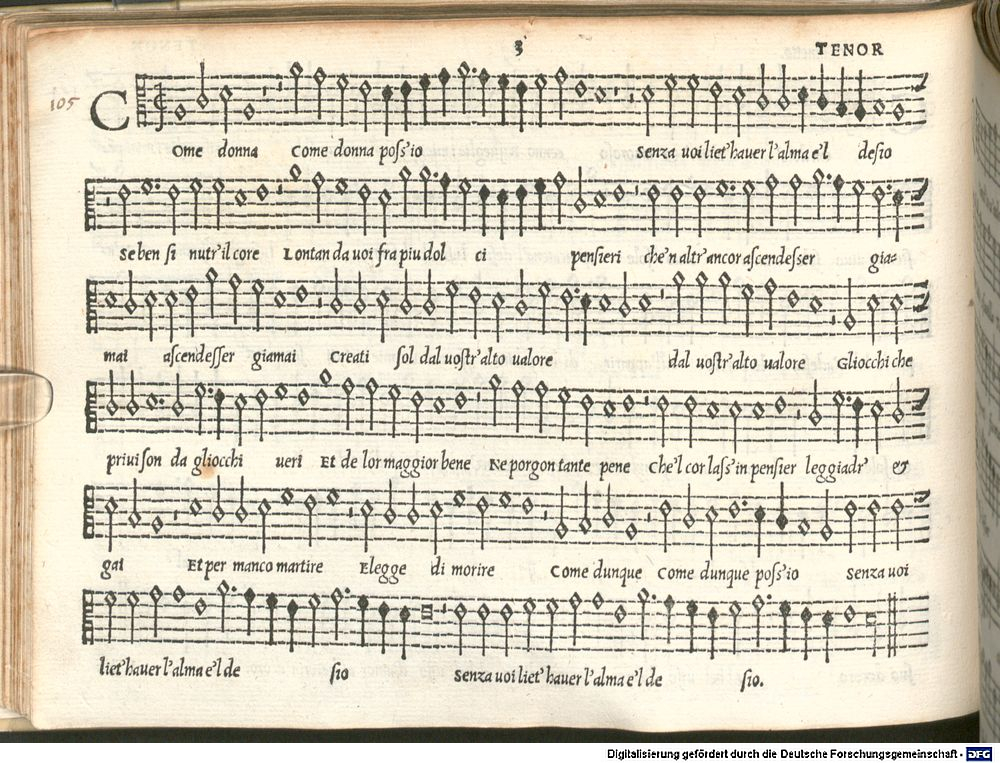 3 TENOR
105
COme donna Come donna poss'io Senza uoi liet'hauer l'alma e'l desio
Se ben si nutr'il core Lontan da uoi fra piu dol ci pensieri che'n altr'ancor ascendesser gia=
mai ascendesser giamai Creati sol dal uostr'alto ualore dal uostr'alto ualore Gliocchi che
priui son da gliocchi ueri Et de lor maggior bene Ne porgon tante pene Che'l cor lass'in pensier leggiadr' &
gai Et per manco martire Elegge di morire Come dunque Come dunque poss'io Senza uoi
liet'hauer l'alma e'l de sio Senza uoi liet'hauer l'alma e'l de sio.
Digitalisierung gefördert durch die Deutsche Forschungsgemeinschaft - DFG